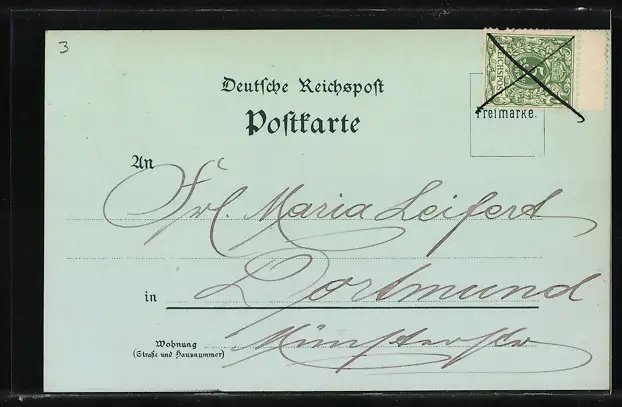 3
REICHSPOST
5
Deutsche Reichspost
Postkarte
Freimarke.
An
Frl. Maria Leifert
in Dortmund
Wohnung
(Straße und Hausnummer)
Münsterstr